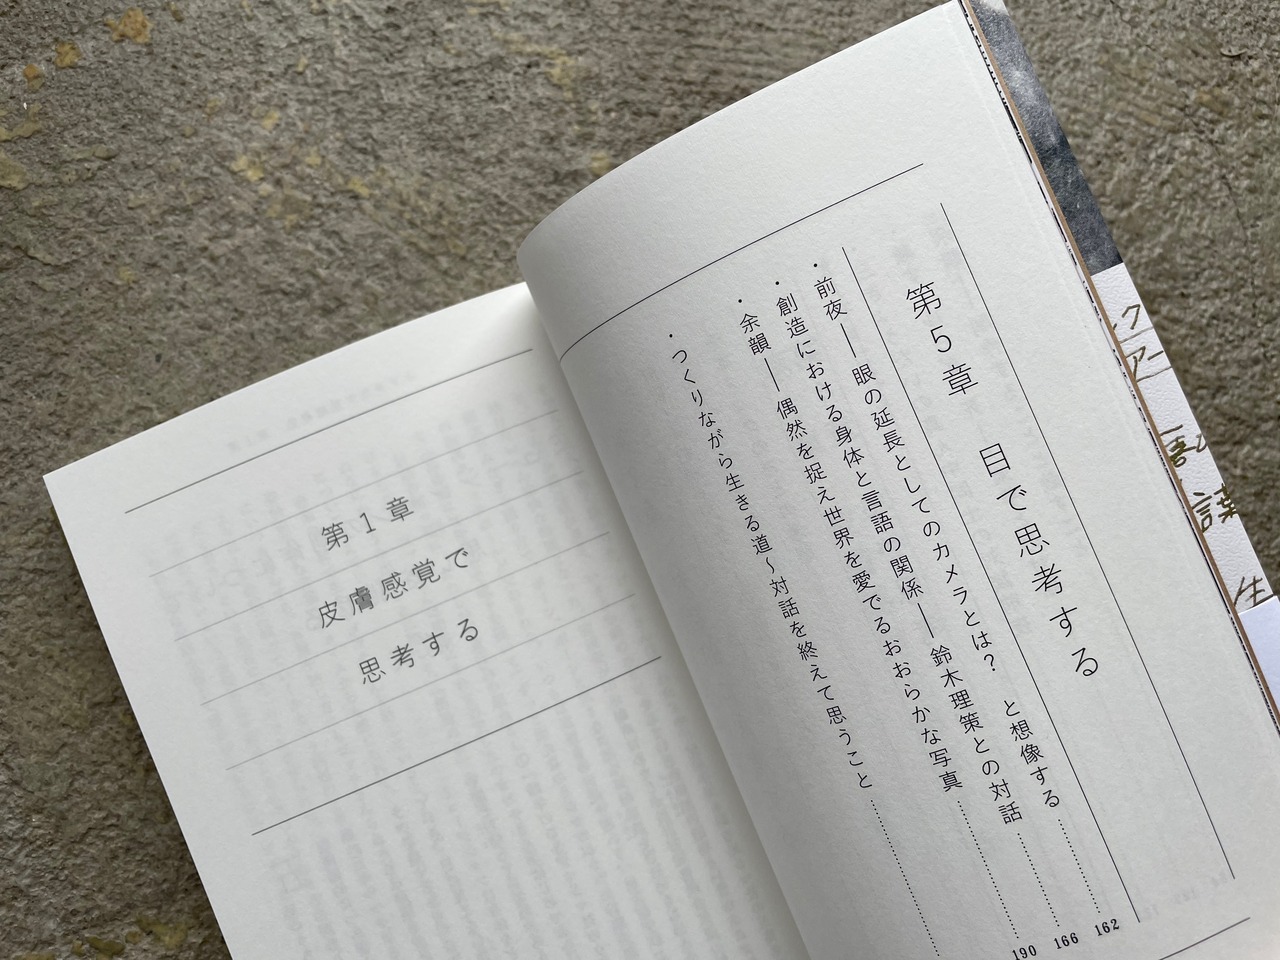 第5章　目で思考する
・前夜――眼の延長としてのカメラとは？　と想像する…………162
・創造における身体と言語の関係――鈴木理策との対話…………166
・余韻――偶然を捉え世界を愛でるおおらかな写真…………190
・つくりながら生きる道〜対話を終えて思うこと…………
第1章
皮膚感覚で
思考する